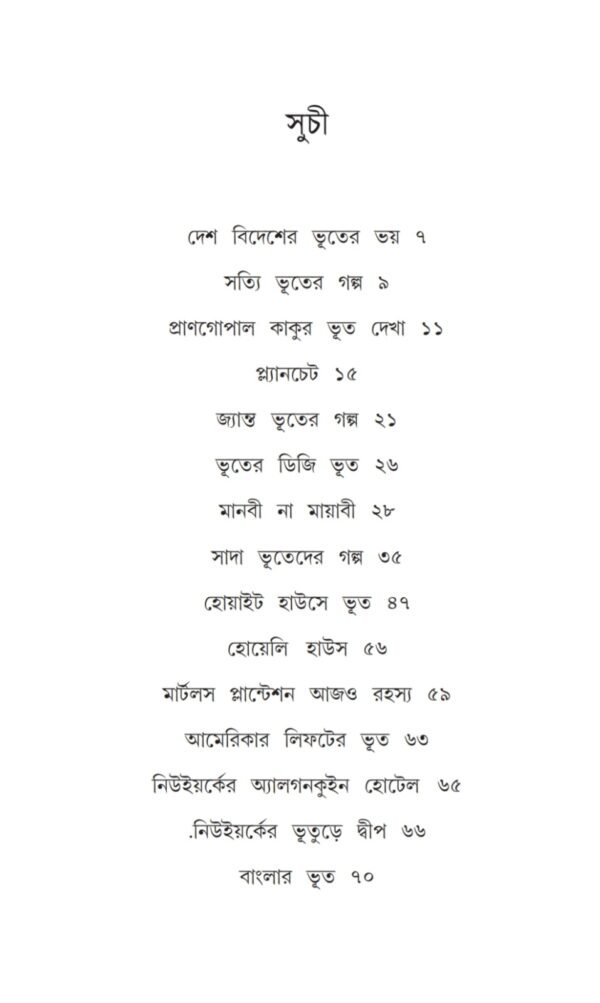 সুচী
দেশ বিদেশের ভূতের ভয় ৭
সত্যি ভূতের গল্প ৯
প্রাণগোপাল কাকুর ভূত দেখা ১১
প্ল্যানচেট ১৫
জ্যান্ত ভূতের গল্প ২১
ভূতের ডিজি ভূত ২৬
মানবী না মায়াবী ২৮
সাদা ভূতেদের গল্প ৩৫
হোয়াইট হাউসে ভূত ৪৭
হোয়েলি হাউস ৫৬
মার্টলস প্লান্টেশন আজও রহস্য ৫৯
আমেরিকার লিফটের ভূত ৬৩
নিউইয়র্কের অ্যালগনকুইন হোটেল ৬৫
.নিউইয়র্কের ভূতুড়ে দ্বীপ ৬৬
বাংলার ভূত ৭০